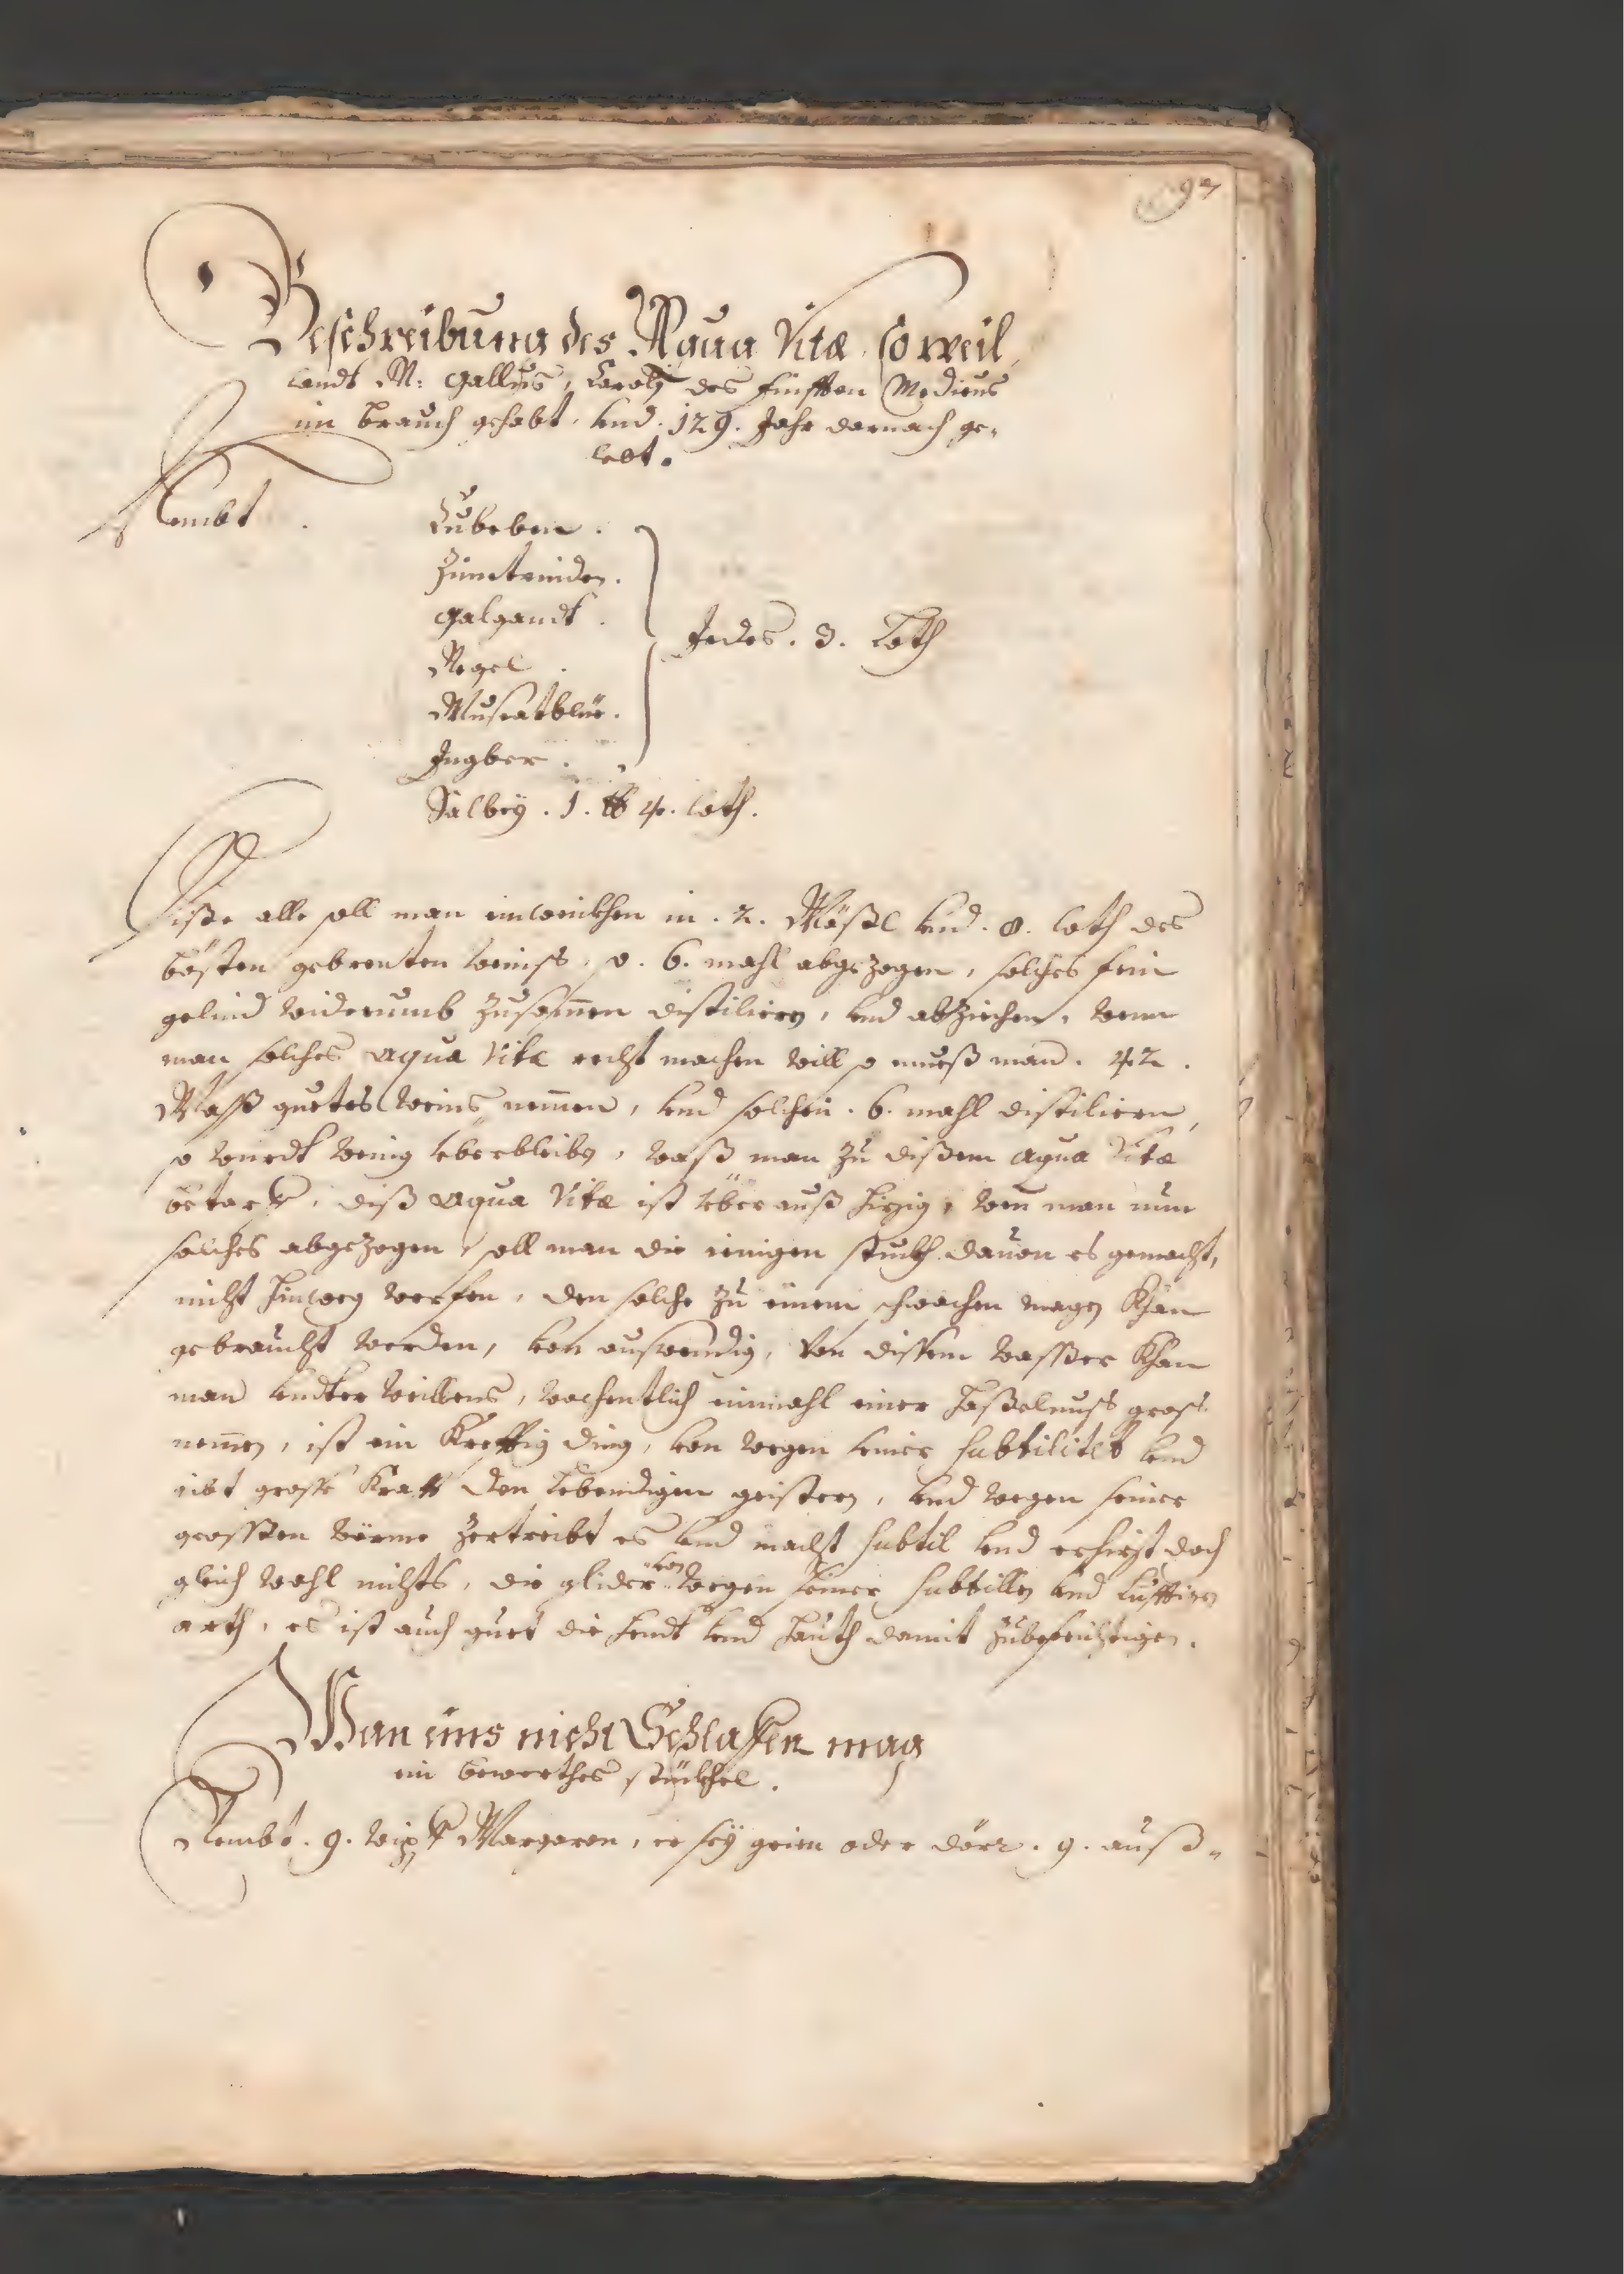 97
Beschreibung des Aqua Vitæ, so weil,
landt M: Gallus, Carolj des finfften Medicus
im brauch gehabt, vnd. 129. Jahr darnach ge„
lebt.
Nembt
Cubeben.
Zimetrinden.
Galgandt.
Negel.
Muscatblüe.
Ingber.
Jedes. 3. Loth
Salbey. 1. ℔ 4. loth.
Diße alle soll man einweickhen in. 2. Mäßl vnd. 8. loth des
bösten gebrenten weinß, so. 6. mahl abgezogen, solches fein
gelind widerumb zusam̄en distiliern, vnd abziehen, wenn
man solches aqua Vitæ recht machen will so mueß man. 42.
Maß guetes Weins nem̄en, vnd solchen. 6. mahl distiliern,
so wirdt wenig vberbleibn, waß man zu dißem aqua Vitæ
betarff, diß aqua Vitæ ist vberauß hizig, wen̄ man nun
solches abgezogen, soll man die ienigen stuckh dauon es gemacht,
nicht hinweg werfen, den solche zu einem schwachen magen khan
gebraucht werden, von auswendig, Von dissem wasser khan
man vndter weillens, wochentlich einmahl einer Haßelnuß groß
nem̄en, ist ein Krefftig ding, von wegen seiner subtilitet vnd
gibt grosse krafft den lebendigen geistern, vnd wegen seiner
grossen wörme zertreibt es vnd macht subtil vnd erhizt doch
gleich wohl nichts, die glider von wegen seiner subtillen vnd lufftigen
arth, es ist auch guet die hendt vnd hauth damit zubefeichtigen.
Wan eins nicht Schlaffen mag
ein bewerthes stückhel.
Nembt. 9. wipfl Margaron, er sey grien oder dörr. 9. auß„